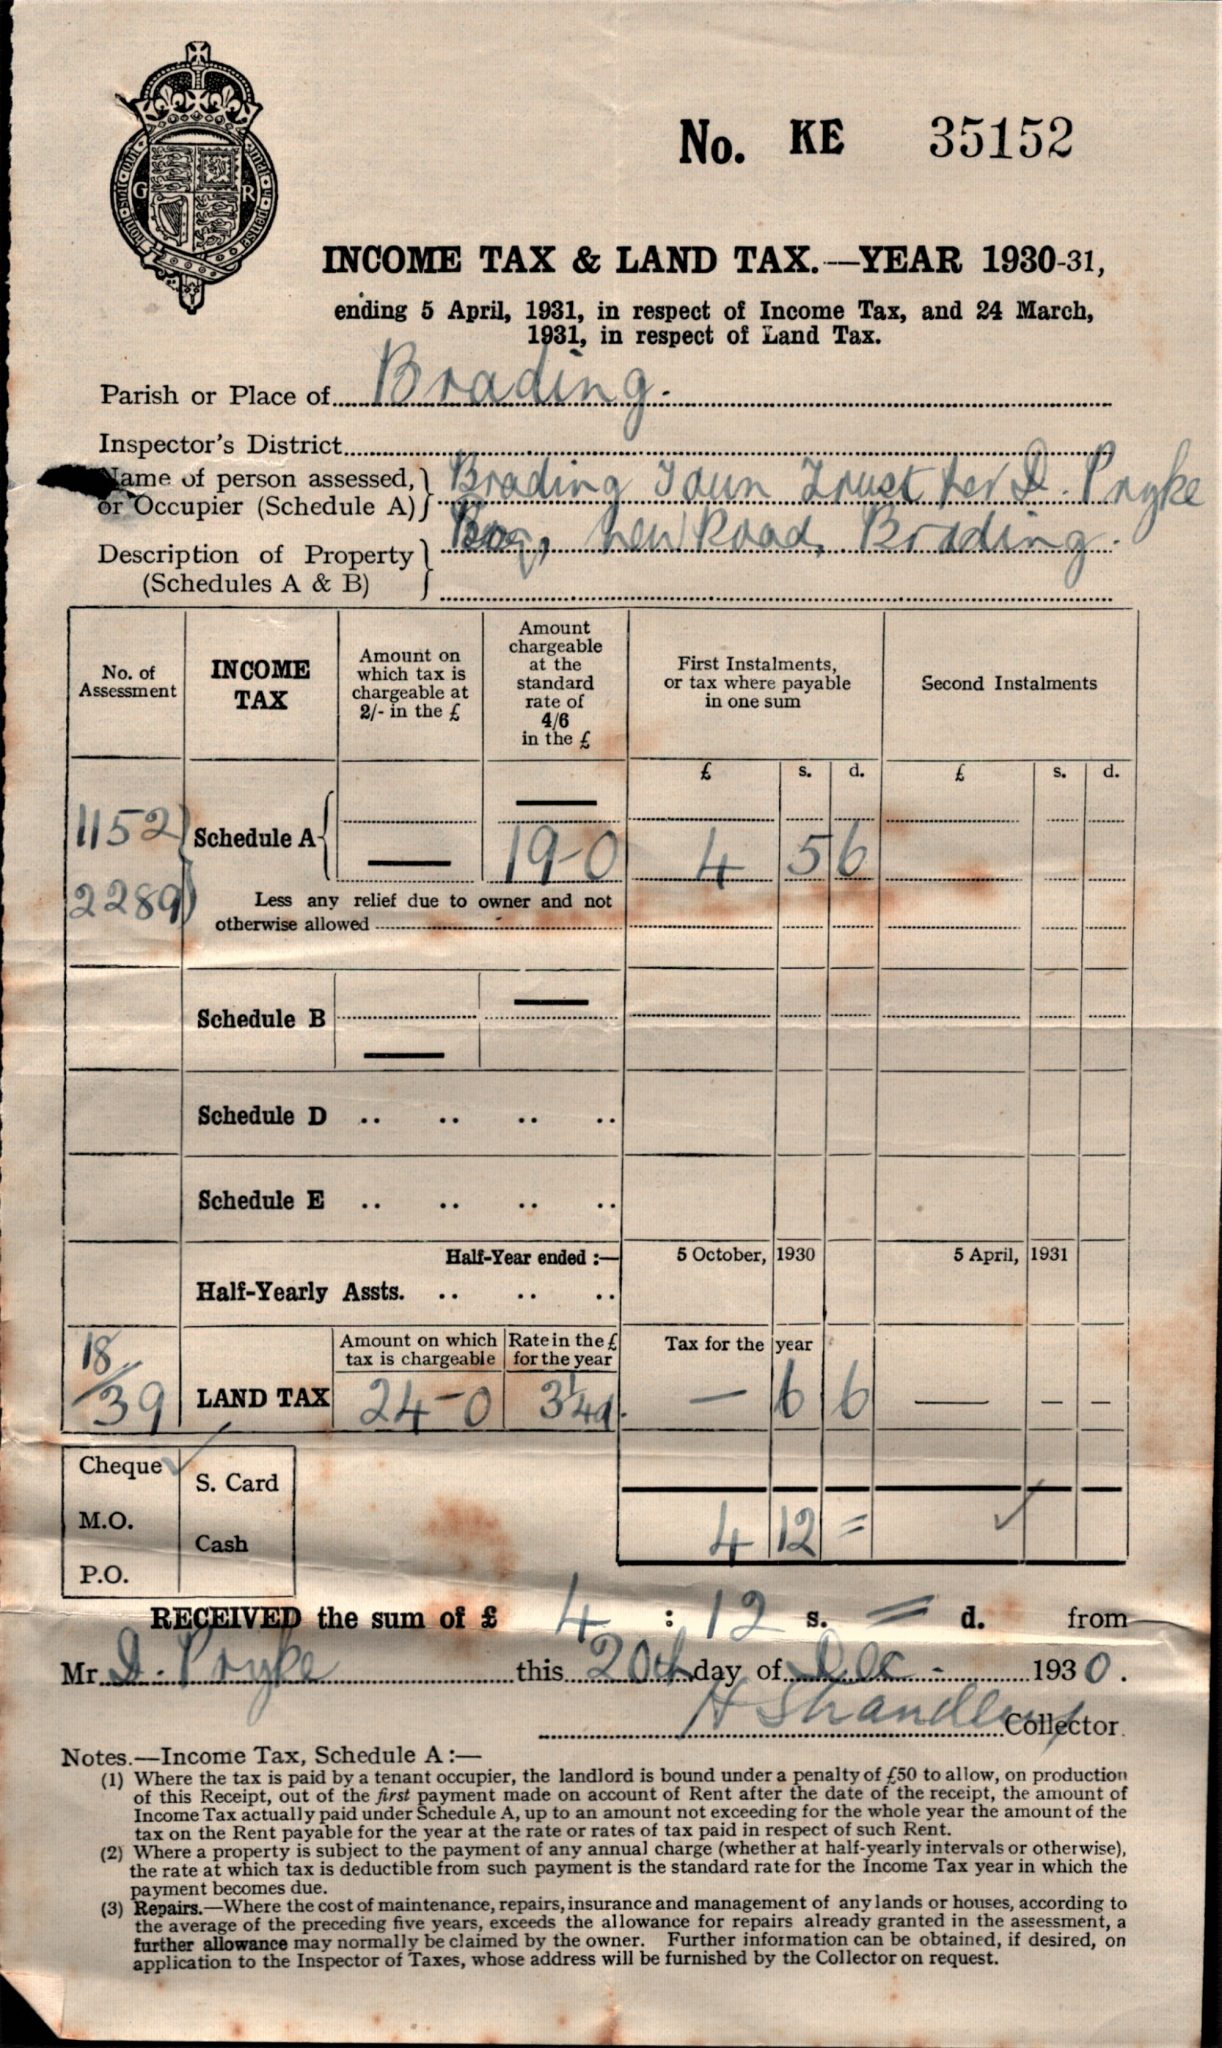 No. KE 35152
G R
INCOME TAX & LAND TAX.—YEAR 1930-31,
ending 5 April, 1931, in respect of Income Tax, and 24 March,
1931, in respect of Land Tax.
Parish or Place of Brading.
Inspector's District
Name of person assessed, or Occupier (Schedule A) Brading Town Trust per D. Pryke
Description of Property (Schedules A & B) New Road, Brading.
No. of Assessment
INCOME TAX
Amount on which tax is chargeable at 2/- in the £
Amount chargeable at the standard rate of 4/6 in the £
First Instalments, or tax where payable in one sum
Second Instalments
£ s. d. £ s. d.
1152
2289
Schedule A 19-0 4 5 6
Less any relief due to owner and not
otherwise allowed
Schedule B
Schedule D .. .. .. ..
Schedule E .. .. .. ..
Half-Year ended :— 5 October, 1930 5 April, 1931
Half-Yearly Assts. .. .. ..
Amount on which tax is chargeable
Rate in the £ for the year
Tax for the year
18/39 LAND TAX 24-0 3¼d. — 6 6 — – –
Cheque ✓ S. Card
M.O.
Cash
P.O.
4 12 = ✓
RECEIVED the sum of £ 4 : 12 s. = d. from
Mr D. Pryke this 20th day of Dec. 1930.
Collector.
Notes.—Income Tax, Schedule A :—
(1) Where the tax is paid by a tenant occupier, the landlord is bound under a penalty of £50 to allow, on production
of this Receipt, out of the first payment made on account of Rent after the date of the receipt, the amount of
Income Tax actually paid under Schedule A, up to an amount not exceeding for the whole year the amount of the
tax on the Rent payable for the year at the rate or rates of tax paid in respect of such Rent.
(2) Where a property is subject to the payment of any annual charge (whether at half-yearly intervals or otherwise),
the rate at which tax is deductible from such payment is the standard rate for the Income Tax year in which the
payment becomes due.
(3) Repairs.—Where the cost of maintenance, repairs, insurance and management of any lands or houses, according to
the average of the preceding five years, exceeds the allowance for repairs already granted in the assessment, a
further allowance may normally be claimed by the owner. Further information can be obtained, if desired, on
application to the Inspector of Taxes, whose address will be furnished by the Collector on request.